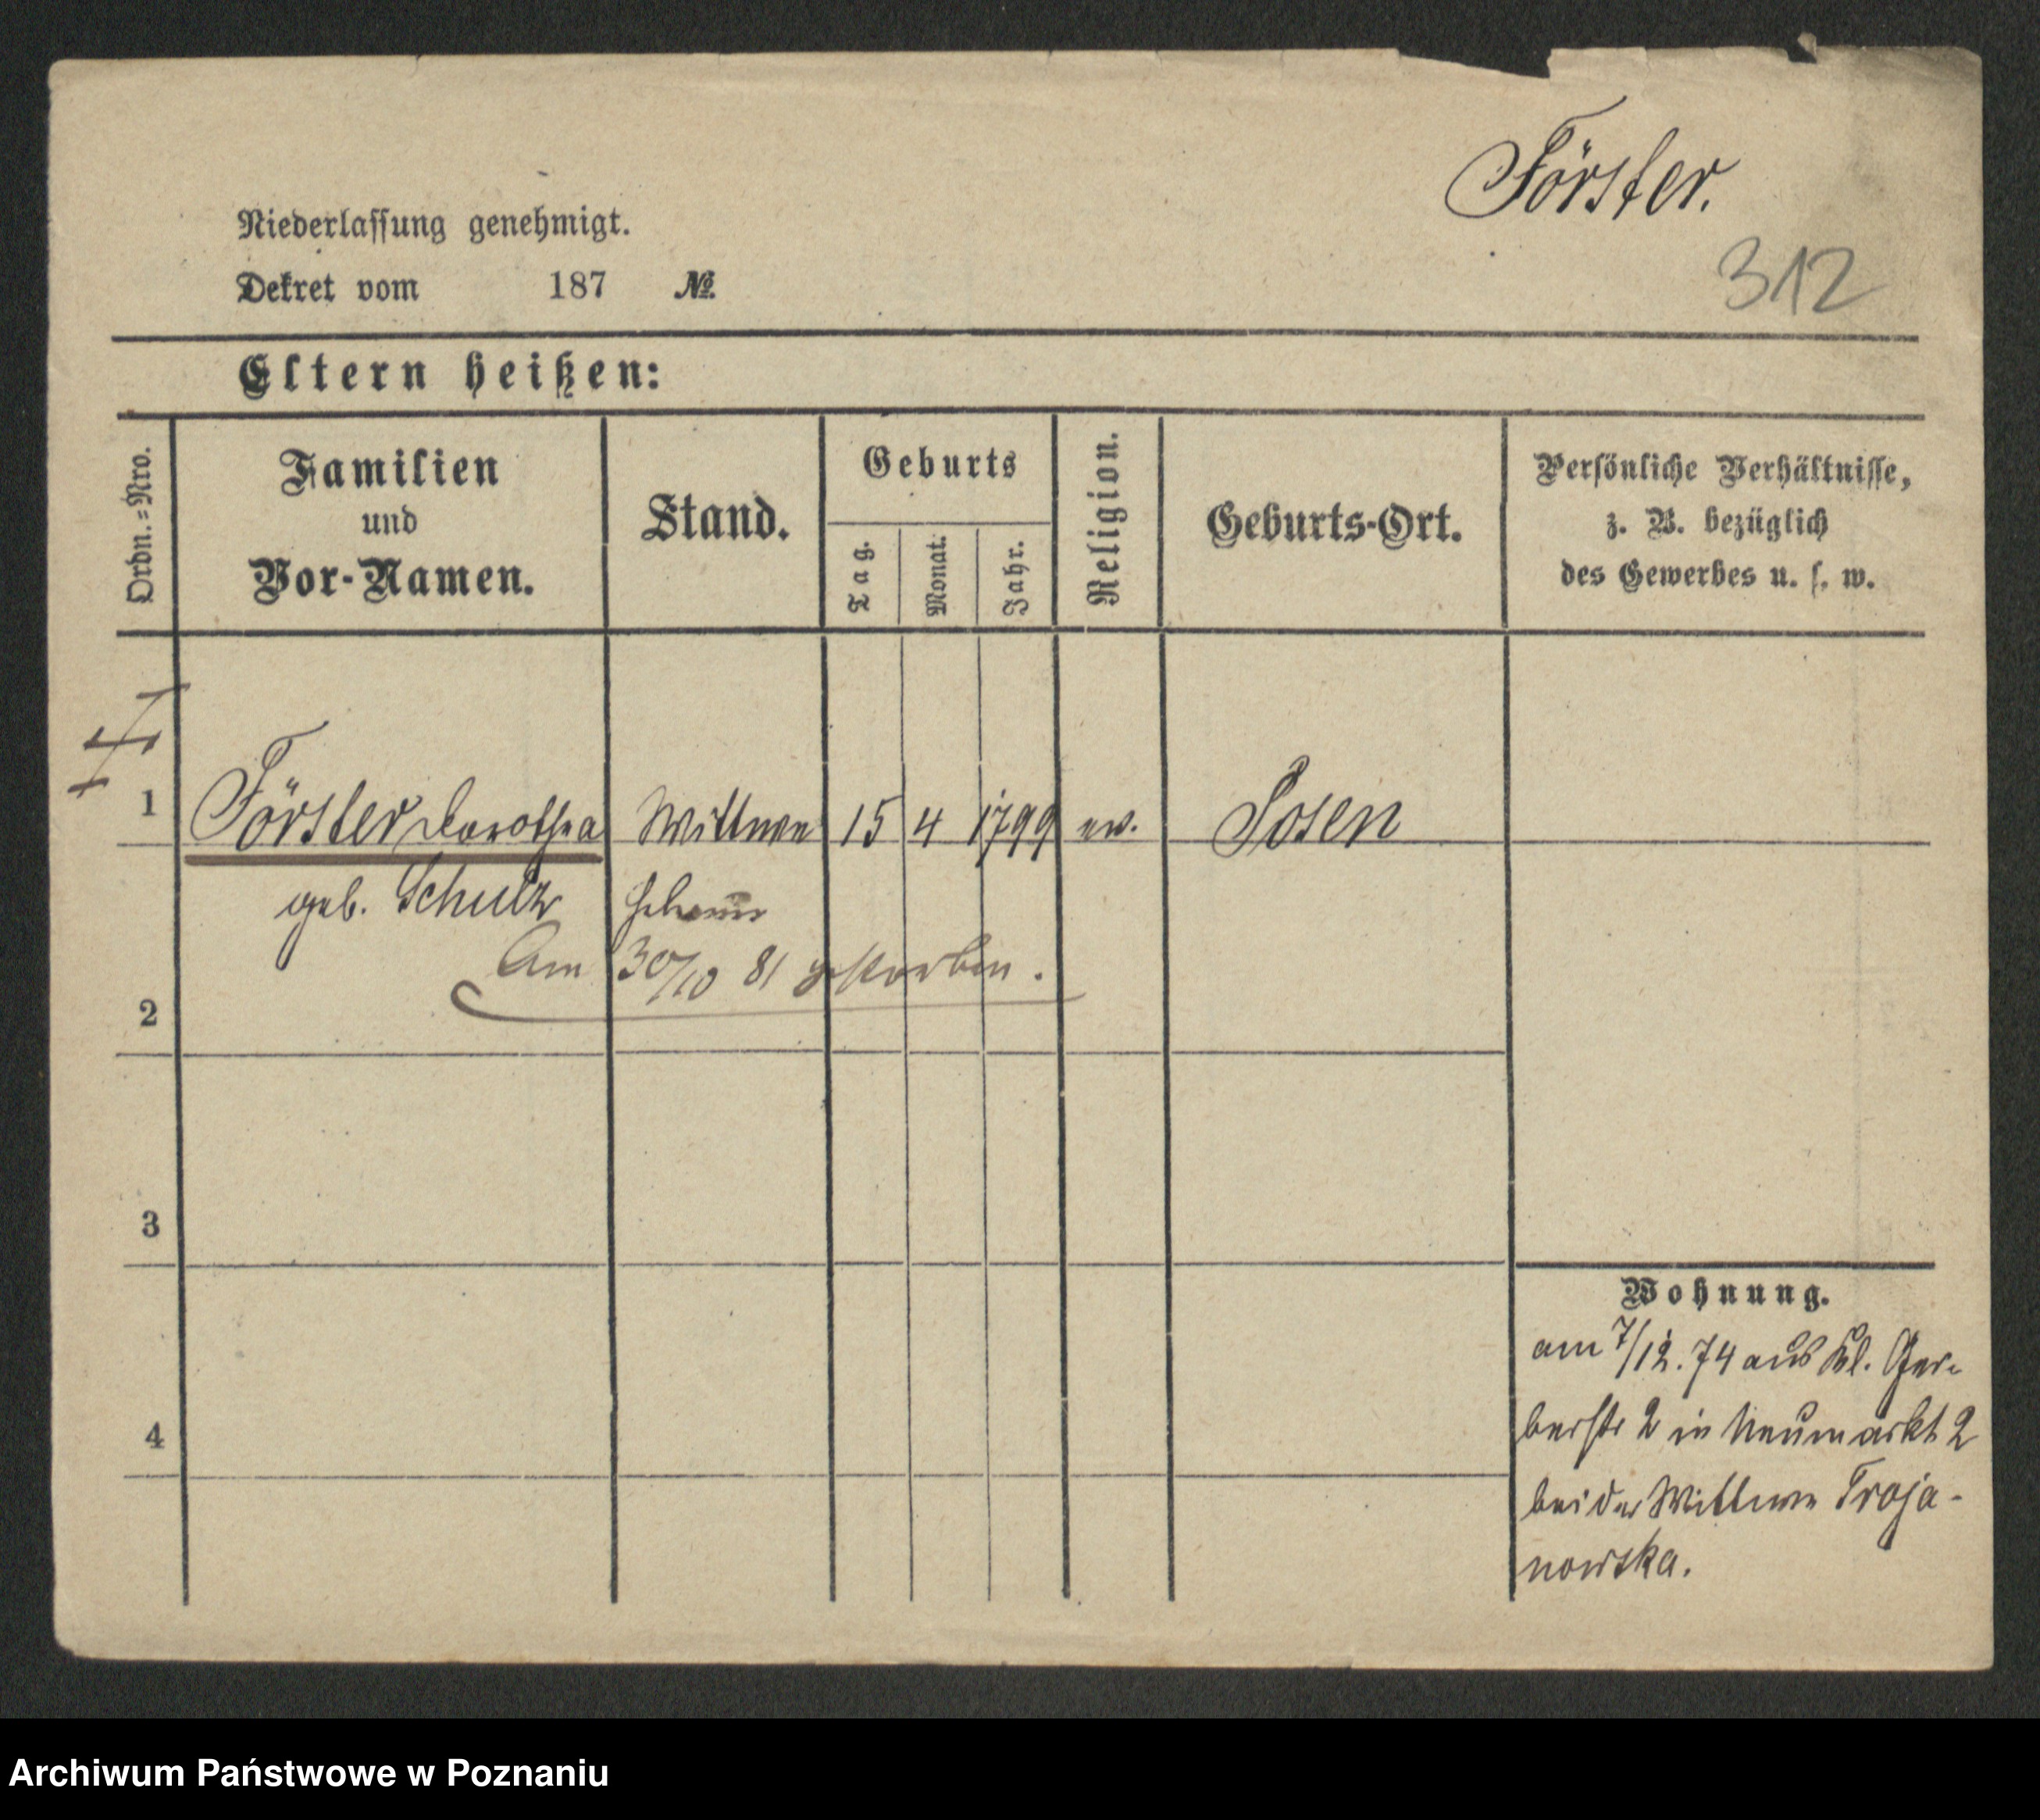 Förster.
312
Niederlassung genehmigt.
Dekret vom 187 №
Eltern heißen:
Ordn.=Nro.
Familien
und
Vor-Namen.
Stand.
Geburts
Tag.
Monat.
Jahr.
Religion.
Geburts-Ort.
Persönliche Verhältnisse,
z. B. bezüglich
des Gewerbes u. s. w.
1 Förster Dorothea Wittwe 15 4 1799 ev. Posen
geb. Schulz
Am 30/10 81 gestorben.
2
3
4
Wohnung.
am 7/12. 74 aus Kl. Ger-
berstr 2 in Neumarkt 2
bei der Wittwe Troja-
nowska.
Archiwum Państwowe w Poznaniu